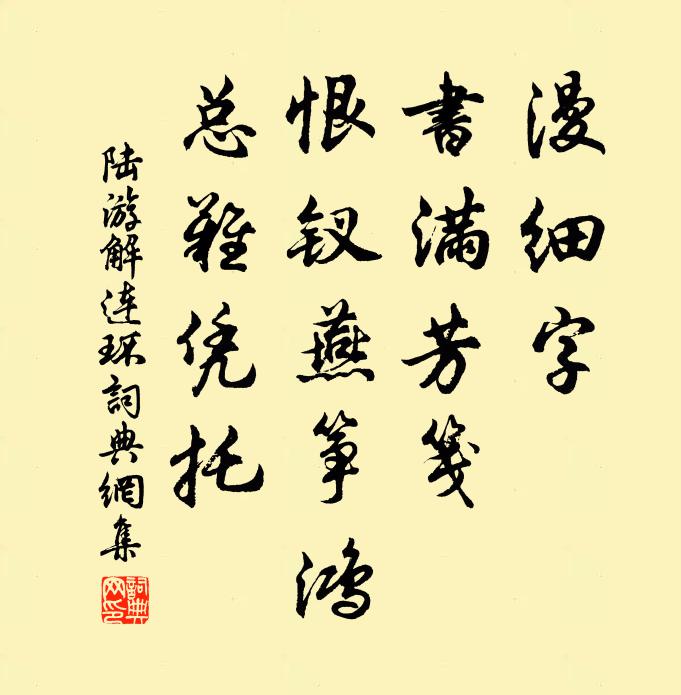 漫细字
書滿芳笺
恨钗燕筝鸿
总難凭托
陆游解连环詞典網集
詞典網印